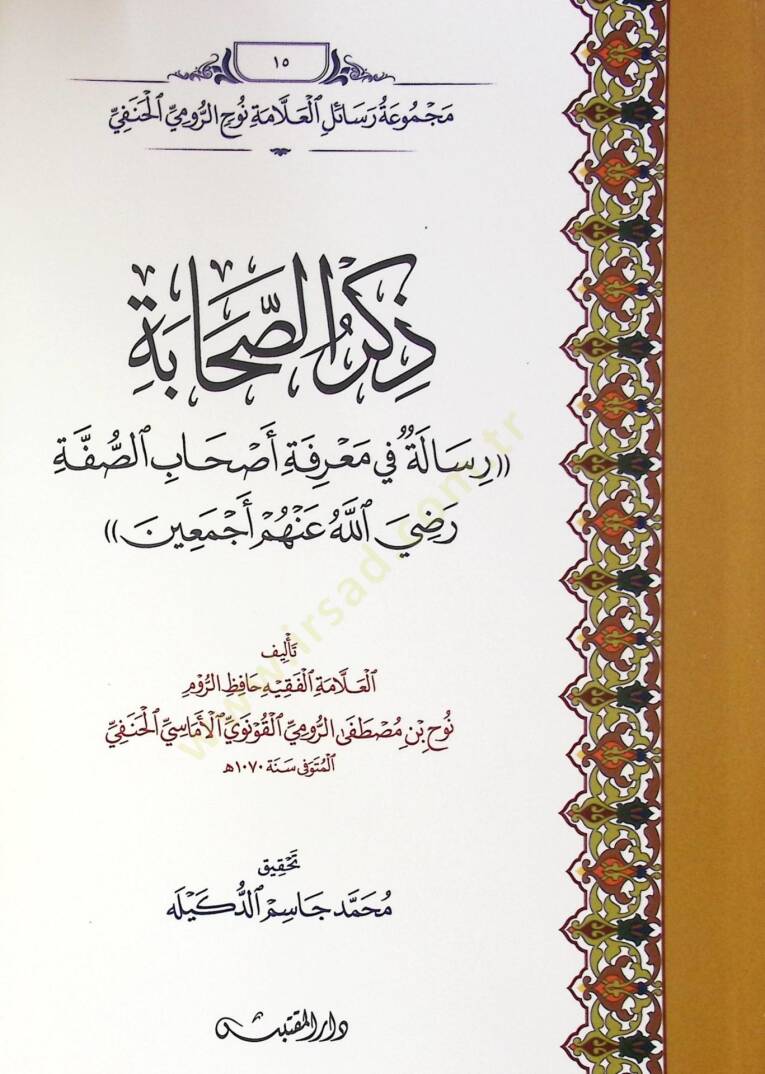 ١٥
مَجْمُوعَةُ رَسَائِلِ ٱلْعَلَّامَةِ نُوحٍ الرُّومِيِّ ٱلْحَنَفِيِّ
ذِكْرُ الصَّحَابَةِ
((رِسَالَةٌ فِي مَعْرِفَةِ أَصْحَابِ ٱلصُّفَّةِ
رَضِيَ ٱللَّهُ عَنْهُمْ أَجْمَعِينَ))
تَأْلِيف
ٱلْعَلَّامَةِ ٱلْفَقِيْهِ حَافِظِ الرُّوْمِ
نُوْحِ بْنِ مُصْطَفَى الرُّومِيِّ ٱلْقُوْنَوِيِّ ٱلْأَمَاسِيِّ ٱلْحَنَفِيِّ
ٱلْمُتَوَفَّى سَنَة ١٠٧٠ هـ
تَحْقِيق
مُحَمَّد جَاسِم ٱلدُّكَيْلَه
دار المقتبس
www.irsad.com.tr